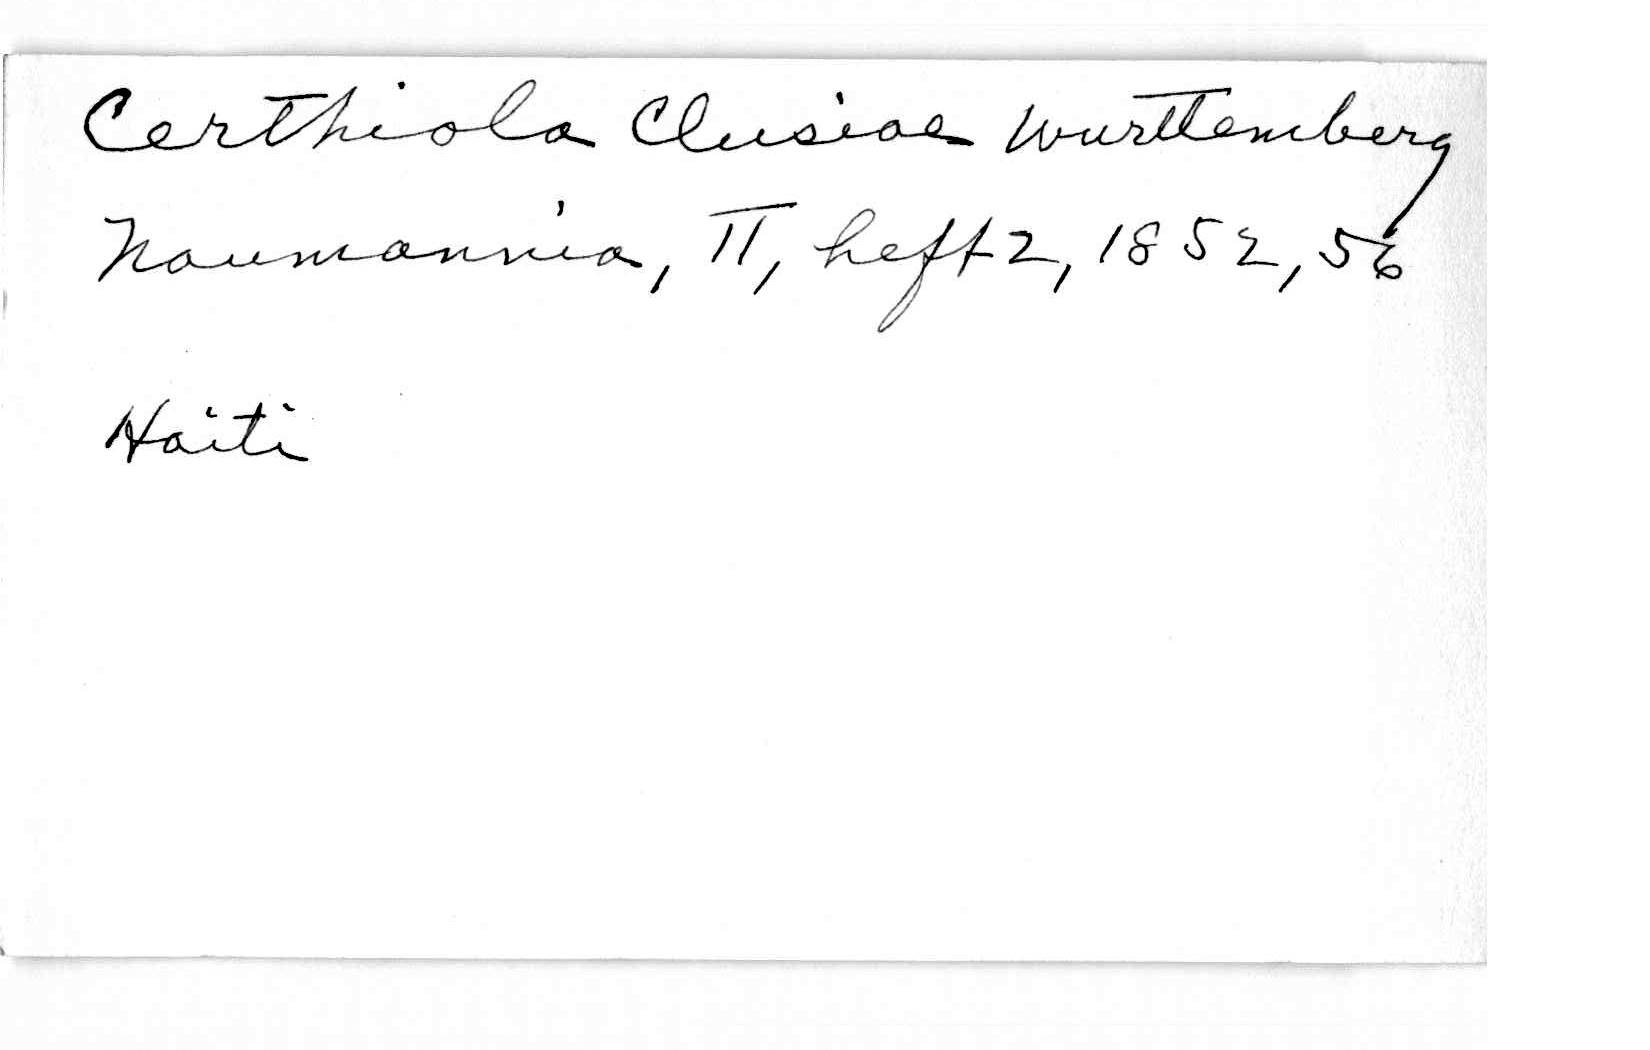 Certhiola Clusiae Wurttemberg
Naumannia, II, heft 2, 1852, 56
Haiti